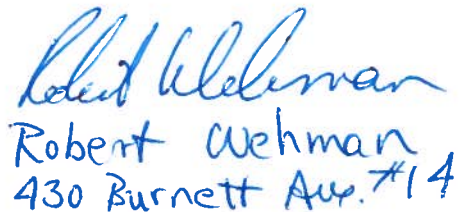 Robert Wehman
Robert Wehman
430 Burnett Ave. #14